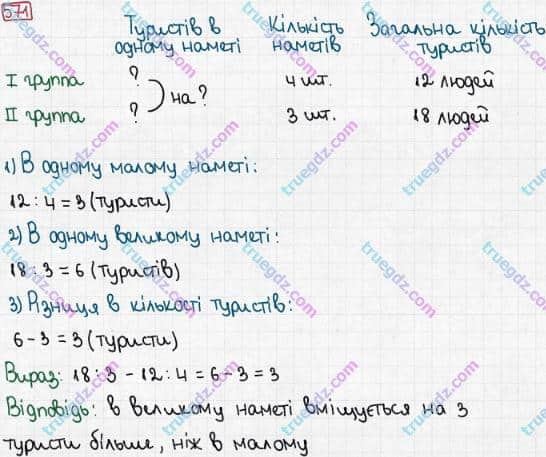 571
Туристів в одному наметі Кількість наметів Загальна кількість туристів
I группа ? 4 шт. 12 людей
на?
II группа ? 3 шт. 18 людей
1) В одному малому наметі:
12 : 4 = 3 (туристи)
2) В одному великому наметі:
18 : 3 = 6 (туристів)
3) Різниця в кількості туристів:
6 - 3 = 3 (туристи)
Вираз: 18 : 3 - 12 : 4 = 6 - 3 = 3
Відповідь: в великому наметі вміщується на 3
туристи більше, ніж в малому
truegdz.com